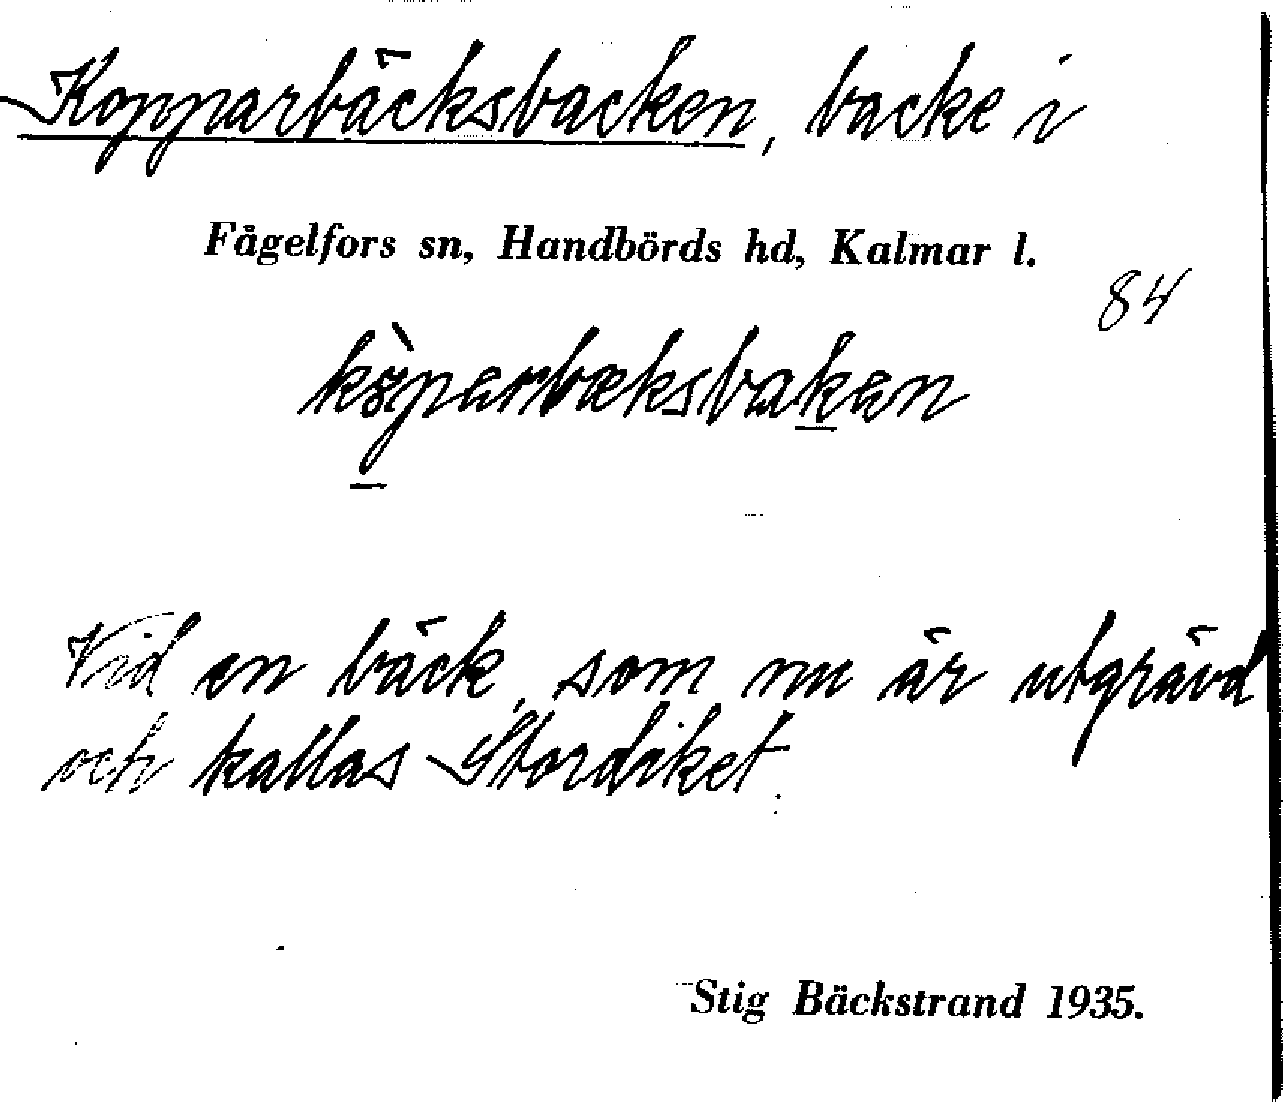 Kopparbäcksbacken, backe i
Fågelfors sn, Handbörds hd, Kalmar l.
84
Vid en bäck, som nu är utgrävd
och kallas Stordiket.
Stig Bäckstrand 1935.